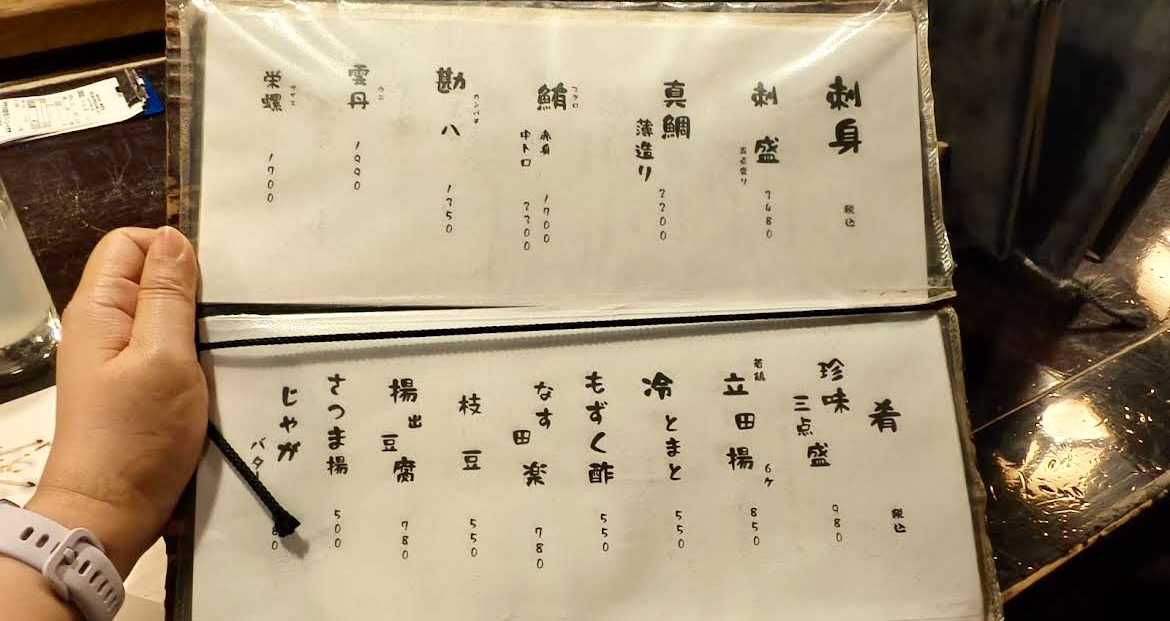 刺身 税込
刺盛 五点盛り 3480
真鯛 薄造り 2200
鮪 マグロ
赤身 1700
中トロ 2300
勘八 カンパチ 1350
雲丹 ウニ 1990
栄螺 サザエ 1700
肴 税込
珍味三点盛 980
若鶏 立田揚 6ケ 850
冷とまと 550
もずく酢 550
なす田楽 780
枝豆 550
揚出豆腐 780
さつま揚 500
じゃが